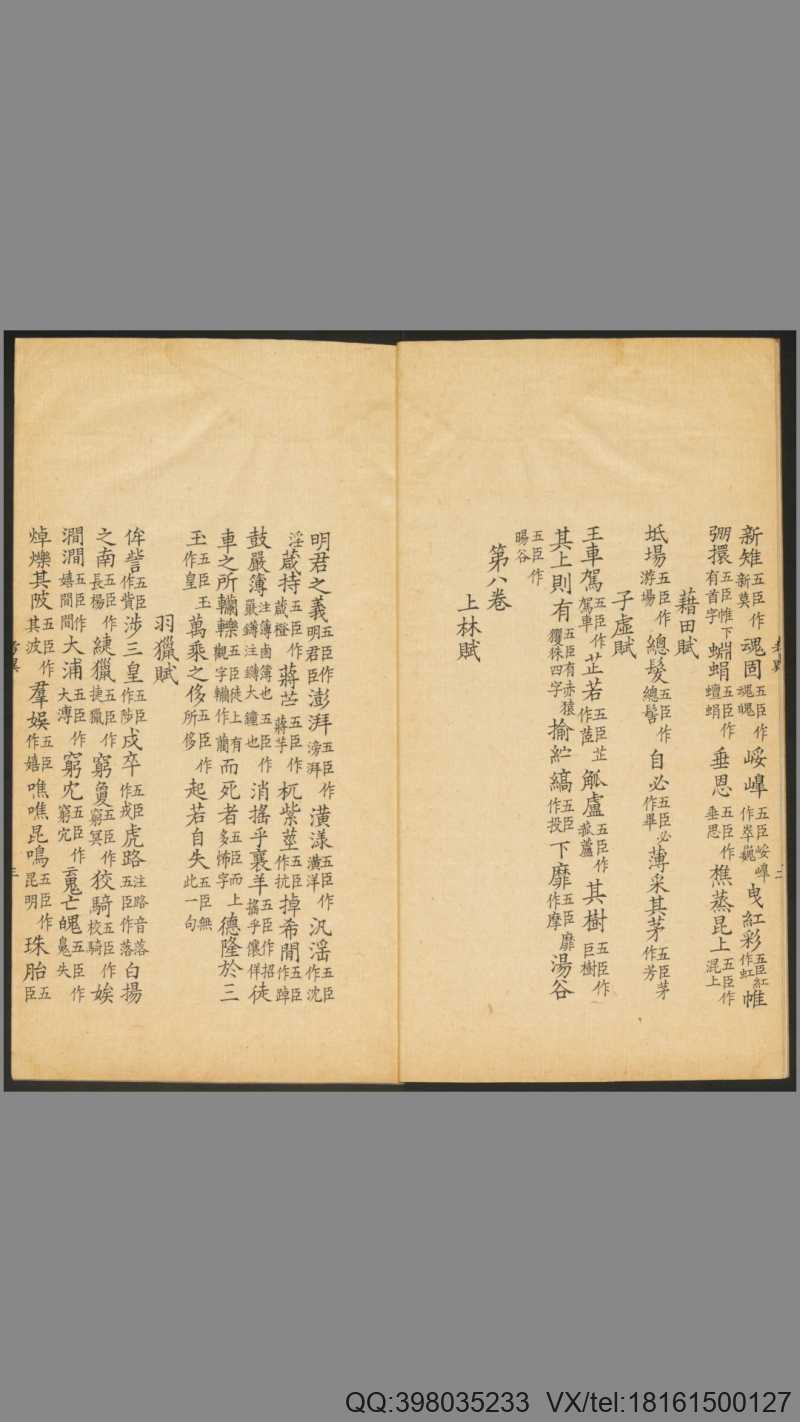 新雉五臣作新荑 魂固五臣作魂魄 㟎嶂五臣㟎嶂作崒巍 曳紅彩五臣紅作虹 帷
弸擐五臣帷下有首字 蜵蜎五臣作蟺蜎 垂恩五臣作垂思 樵蒸昆上五臣作混上
藉田賦
坻場五臣作游場 總髮五臣作總髻 自必五臣必作畢 薄采其茅五臣茅作芳
子虛賦
王車駕五臣作駕車 芷若五臣芷作茝 觚盧五臣作菰蘆 其樹五臣作巨樹
其上則有五臣有赤猿玃猱四字 揄紵縞五臣作投 下靡五臣靡作摩 湯谷
五臣作暘谷
第八卷
上林賦
明君之義五臣作明君臣 澎湃五臣作滂湃 潢漾五臣作潢洋 汎滛五臣作沈
淫 葴持五臣作葴橙 蔣芧五臣作蔣苧 杌紫莖五臣作抗 掉希閒五臣作踔
鼓嚴簿注簿鹵簿也 五臣作嚴鑄注鑄大鐘也 消搖乎襄羊五臣作招搖乎儴佯 徒
車之所轥轢五臣徒上有觀字轥作藺 而死者五臣而上多怖字 德隆於三
王五臣王作皇 萬乘之侈五臣作所侈 起若自失五臣無此一句
羽獵賦
侔訾五臣作貲 涉三皇五臣作陟 戍卒五臣作戎 虎路注路音落五臣作落 白揚
之南五臣作長楊 緁獵五臣作捷獵 窮敻五臣作窮冥 狡騎五臣作校騎 娭
澗澗五臣作嬉間間 大浦五臣作大溥 窮冘五臣作窮宂 亡魄五臣作䰟失
焯爍其陂五臣作其波 羣娛五臣作嬉 噍噍昆鳴五臣作昆明 珠胎五臣
QQ:398035233 VX/tel:18161500127